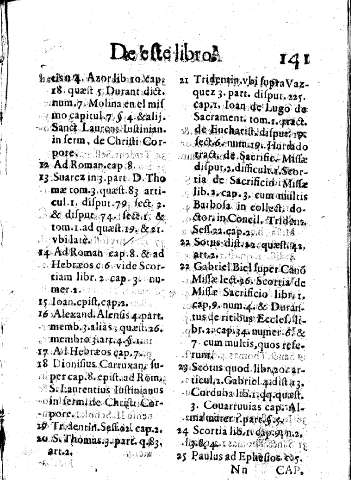 De este libro. 141
Azor lib 10. cap.
18. quæst 5 Durant dict.
num. 7. Molina en el mis
mo capitul. 7. § 4 & alij.
Sanct Laurens Iustinian.
in serm, de Christi Cor-
pore.
12 Ad Roman cap. 8.
13 Suarez in 3. part D. Tho
mæ tom. 3. quæst. 83 arti
cul. 1. disput. 79. sect. 2.
& disput 74. sect. 1. &
tom. 1. ad quæst 19. & 21.
vbi late.
14 Ad Roman cap. 8. & ad
Hebræos c. 6 vide Scor-
tiam libr. 2 cap. 3. nu-
mer. 2.
15 Ioan. epist. cap. 2.
16 Alexand. Alens. 4. part.
memb. 3. alias, quæst. 26.
membro 3. art. 4. §.
17 Ad Hebræos cap. 7.
18 Dionisius Carruxan. su-
per cap. 8. epist. ad Rom.
S. Laurentius Iustinianus
in serm. de Christi Cor-
pore.
19 Tridentin. Sess. 22. cap. 2.
20 S. Thomas 3. part. q. 83,
art. 2.
21 Tridentin. vbi supra Vaz-
quez 3. part. disput. 225.
cap. 1. Ioan de Lugo de
Sacrament. tom. 1. pract.
de Eucharist. disput. 19.
sect. 6. num. 19. Hurtado
tract. de Sacrific. Missæ
disput. 2. difficult. 1. Scor-
tia de Sacrificio Missæ
lib. 2. cap. 3. cum multis
Barbosa in collect. do-
ctor. in Concil. Tridenz.
Sess. 22. cap. 2.
22 Sotus dist. 12 quæst. 2,
art. 2.
22 Gabriel Biel super Canõ
Missæ lect. 26. Scortia de
Missæ Sacrificio libr. 1.
cap. 9. num. 4. & Duran-
tus de ritibus Eccles. li-
br. 2. cap. 34. numer. 6. &
7. cum multis, quos refe-
runt.
23 Scotus quod. libr. 20 ar-
ticul. 2. Gabriel 4. dist. 13.
Corduba lib. 1. qq. quæst.
3. Couarruuias cap. Al-
ma mater 1. part. §. 5.
24 Scortia lib. 1. cap. 9. n. 2.
3. & 4.
25 Paulus ad Ephesios c. 5.
Nn CAP.